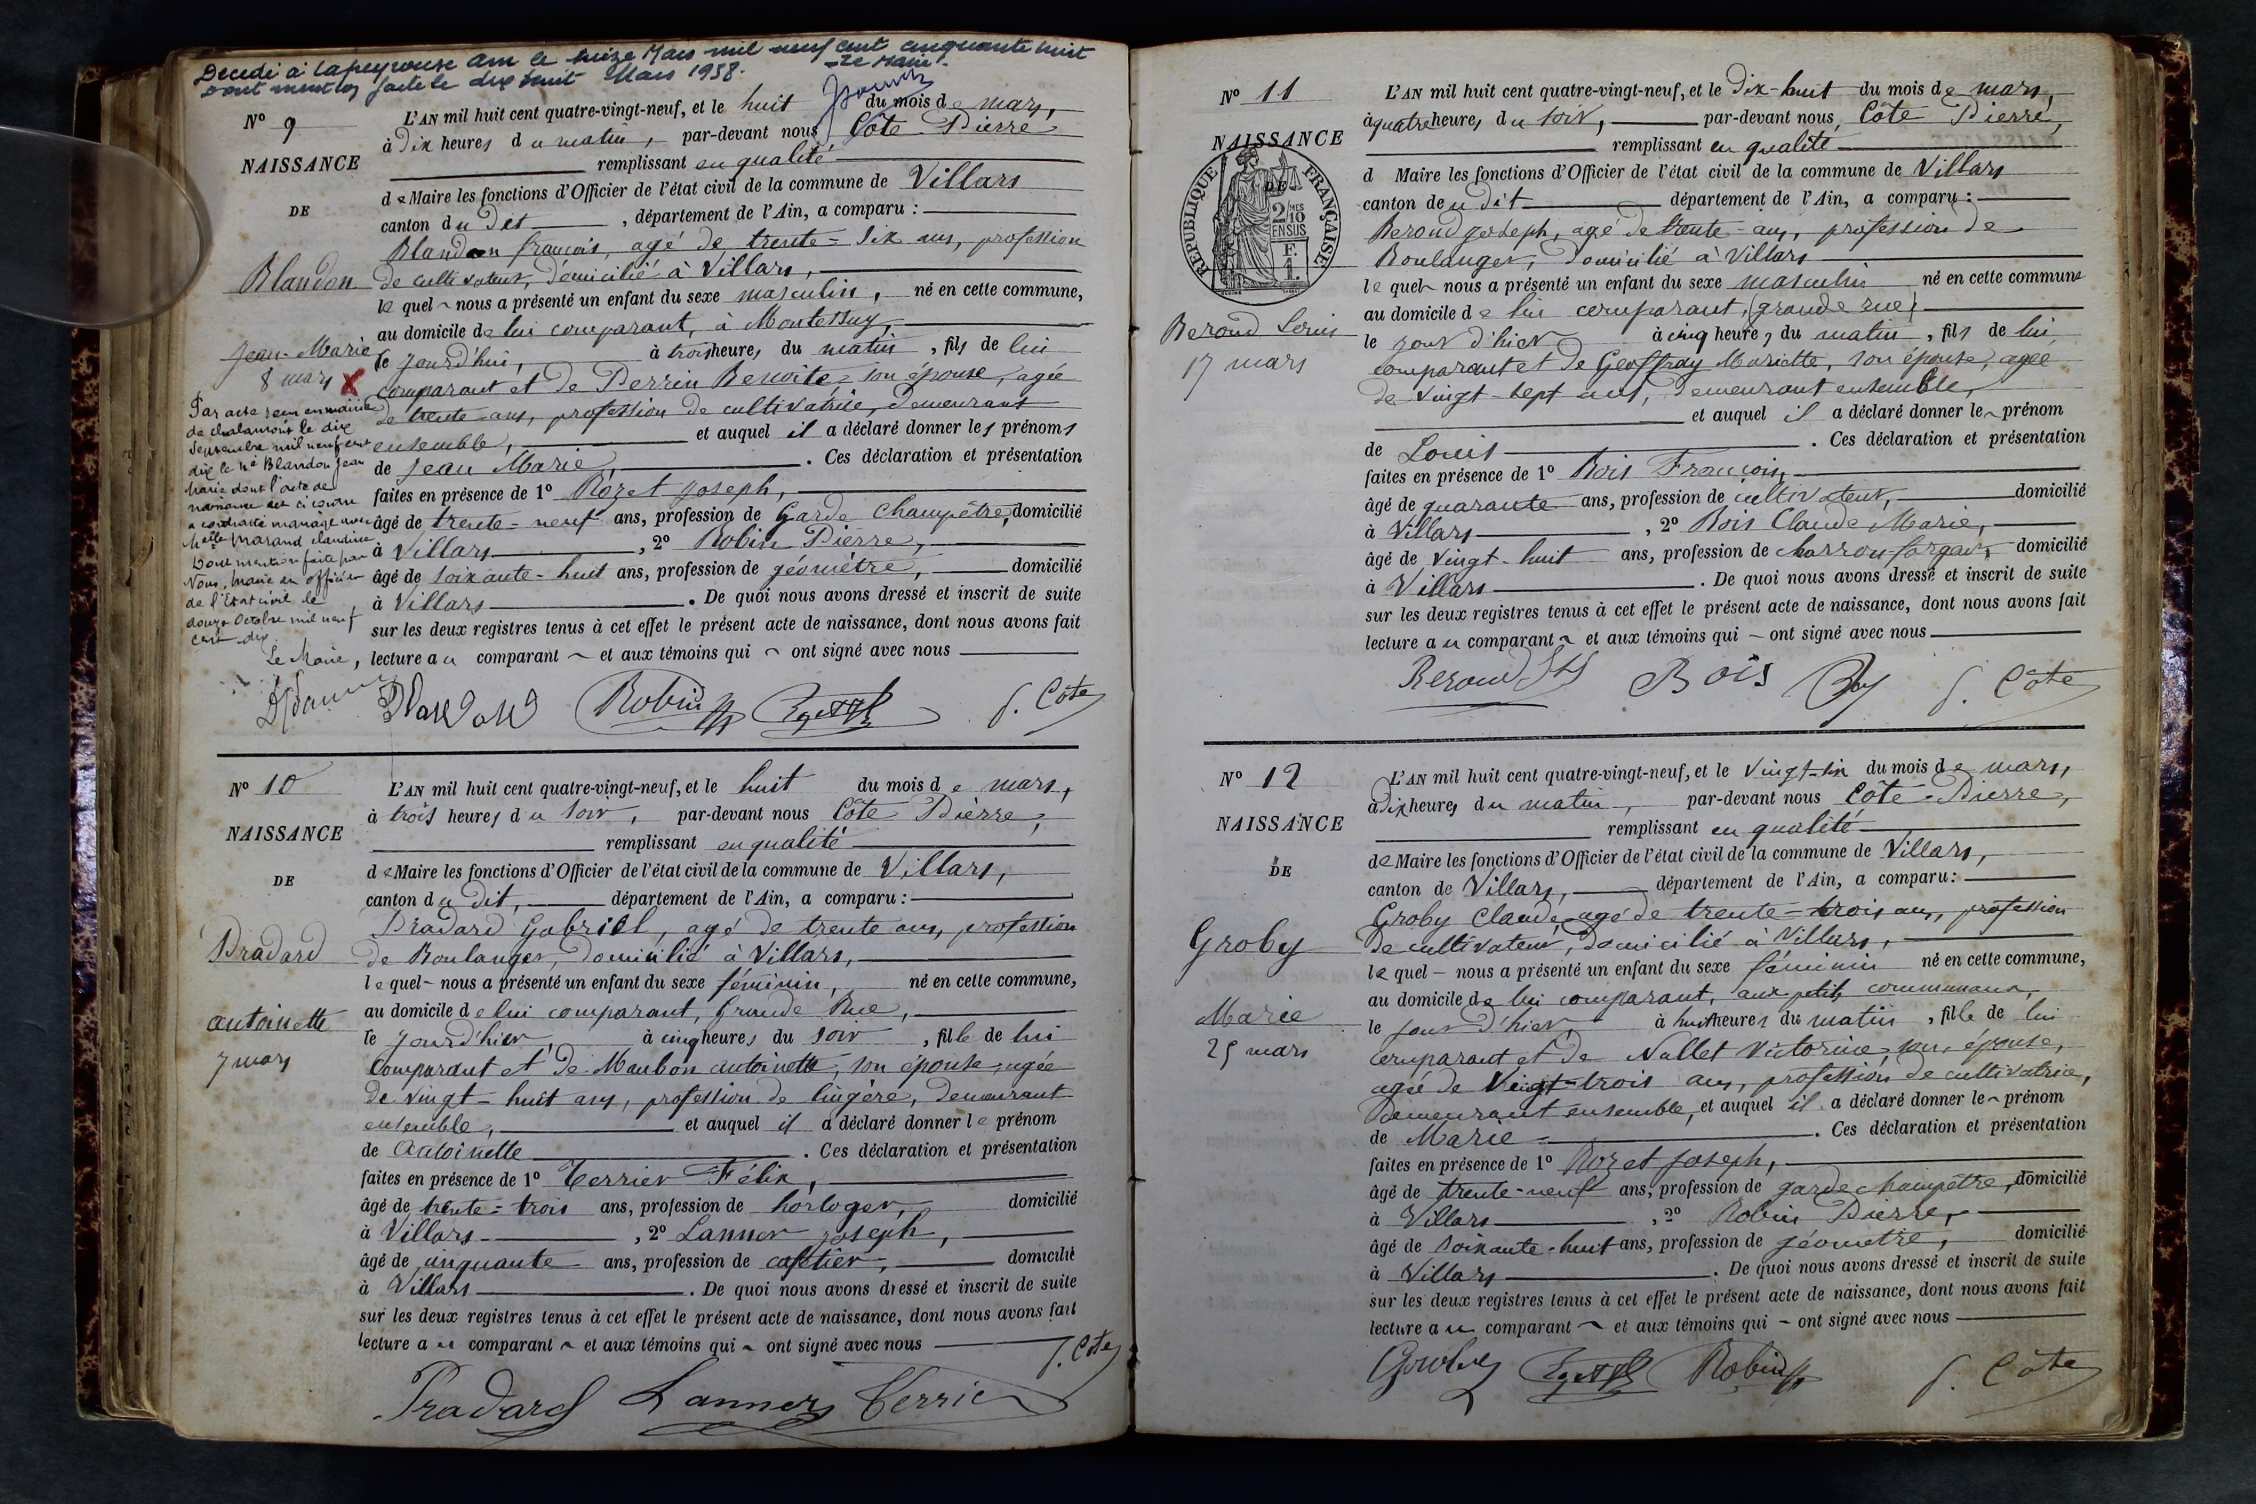 Décédé à Lapeyrouse Ain le seize Mars mil neuf cent cinquante huit
Dont mention faite le dix huit Mars 1958. Le Maire
N° 9
NAISSANCE
DE
Blandon
Jean-Marie
8 mars
Par acte reçu en mairie
de chalamont le dix
Septembre mil neuf cent
dix le né Blandon Jean
Marie dont l'acte de
naissance est ci contre
a contracté mariage avec
Melle Marand claudine
Dont mention faite par
Nous, Maire en officier
de l'Etat civil le
douze Octobre mil neuf
cent dix
Le Maire,
L'AN mil huit cent quatre-vingt-neuf, et le huit du mois de mars,
à Dix heures du matin, par-devant nous Côte Pierre
remplissant en qualité
de Maire les fonctions d'Officier de l'état civil de la commune de Villars
canton du Dit, département de l'Ain, a comparu :
Blandon françois, agé de trente-six ans, profession
de cultivateur, domicilié à Villars,
le quel nous a présenté un enfant du sexe masculin, né en cette commune,
au domicile de lui comparant, à Montessuy,
le jourd'hui, à trois heures du matin, fils de lui
comparant et de Perrin Benoite son épouse, agée
de trente ans, profession de cultivatrice, demeurant
ensemble, et auquel il a déclaré donner les prénoms
de Jean Marie, . Ces déclaration et présentation
faites en présence de 1° Rozet Joseph,
âgé de trente-neuf ans, profession de Garde Champêtre, domicilié
à Villars, 2° Robin Pierre,
âgé de soixante-huit ans, profession de géomètre, domicilié
à Villars. De quoi nous avons dressé et inscrit de suite
sur les deux registres tenus à cet effet le présent acte de naissance, dont nous avons fait
lecture au comparant et aux témoins qui ont signé avec nous
Blandon Robin P. Côte
N° 10
NAISSANCE
DE
Pradard
Antoinette
7 mars
L'AN mil huit cent quatre-vingt-neuf, et le huit du mois de mars,
à trois heures du soir, par-devant nous Côte Pierre,
remplissant en qualité
de Maire les fonctions d'Officier de l'état civil de la commune de Villars,
canton du dit, département de l'Ain, a comparu :
Pradard Gabriel, agé de trente ans, profession
de Boulanger, domicilié à Villars,
le quel nous a présenté un enfant du sexe féminin, né en cette commune,
au domicile de lui comparant, Grande Rue,
le jour d'hier, à cinq heures du soir, fille de lui
Comparant et de Maubon antoinette, son épouse, agée
de vingt-huit ans, profession de lingère, demeurant
ensemble, et auquel il a déclaré donner le prénom
de Antoinette. Ces déclaration et présentation
faites en présence de 1° Terrier Félix,
âgé de trente-trois ans, profession de horloger, domicilié
à Villars, 2° Lanner Joseph,
âgé de cinquante ans, profession de cafetier, domicilié
à Villars. De quoi nous avons dressé et inscrit de suite
sur les deux registres tenus à cet effet le présent acte de naissance, dont nous avons fait
lecture au comparant et aux témoins qui ont signé avec nous
P. Côte
Pradard Lanner Terrier
N° 11
NAISSANCE
DE
RÉPUBLIQUE FRANÇAISE
2/10 MES
EN SUS
F.
1.
Beroud Louis
17 mars
L'AN mil huit cent quatre-vingt-neuf, et le Dix-huit du mois de mars,
à quatre heures du soir, par-devant nous, Côte Pierre,
remplissant en qualité
d Maire les fonctions d'Officier de l'état civil de la commune de Villars
canton de u dit département de l'Ain, a comparu :
Beroud Joseph, agé de trente ans, profession de
Boulanger, domicilié à Villars
le quel nous a présenté un enfant du sexe masculin né en cette commune
au domicile de lui comparant, (grande rue)
le jour d'hier à cinq heures du matin, fils de lui
comparant et de Geoffray Mariette, son épouse, agée
de vingt-sept ans, demeurant ensemble,
et auquel il a déclaré donner le prénom
de Louis. Ces déclaration et présentation
faites en présence de 1° Bois François,
âgé de quarante ans, profession de cultivateur, domicilié
à Villars, 2° Bois Claude Marie,
âgé de vingt-huit ans, profession de charron forgeur, domicilié
à Villars. De quoi nous avons dressé et inscrit de suite
sur les deux registres tenus à cet effet le présent acte de naissance, dont nous avons fait
lecture au comparant et aux témoins qui ont signé avec nous
Beroud Bois P. Côte
N° 12
NAISSANCE
DE
Groby
Marie
25 mars
L'AN mil huit cent quatre-vingt-neuf, et le vingt-six du mois de mars,
à Dix heures du matin, par-devant nous Côte Pierre,
remplissant en qualité
de Maire les fonctions d'Officier de l'état civil de la commune de Villars,
canton de Villars, département de l'Ain, a comparu :
Groby Claude, agé de trente-trois ans, profession
de cultivateur, domicilié à Villars,
le quel nous a présenté un enfant du sexe féminin né en cette commune,
au domicile de lui comparant, aux petits communaux,
le jour d'hier, à huit heures du matin, fille de lui
comparant et de Nallet Victorine, son épouse,
agée de vingt-trois ans, profession de cultivatrice,
demeurant ensemble, et auquel il a déclaré donner le prénom
de Marie. Ces déclaration et présentation
faites en présence de 1° Rozet Joseph,
âgé de trente-neuf ans, profession de garde champêtre, domicilié
à Villars, 2° Robin Pierre,
âgé de soixante-huit ans, profession de géomètre, domicilié
à Villars. De quoi nous avons dressé et inscrit de suite
sur les deux registres tenus à cet effet le présent acte de naissance, dont nous avons fait
lecture au comparant et aux témoins qui ont signé avec nous
Groby Robin P. Côte